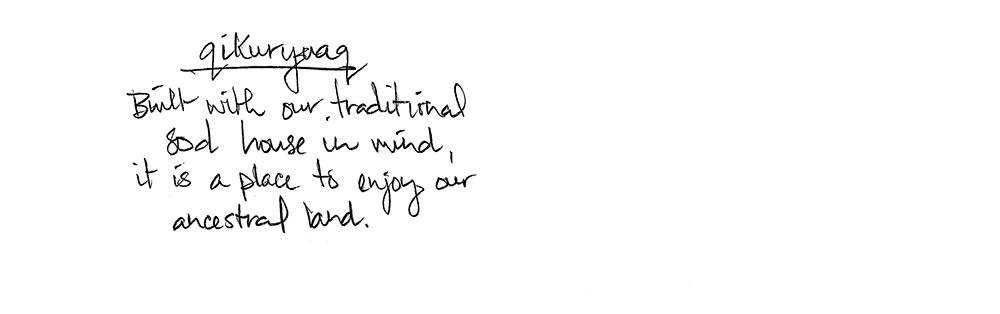 qikuryaaq
Built with our traditional
sod house in mind,
it is a place to enjoy our
ancestral land.